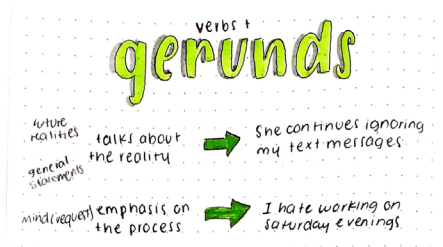 verbs +
gerunds
future
realities
general
statements
talks about
the reality
She continues ignoring
my text messages
mind (request)
emphasis on
the process
I hate working on
saturday evenings